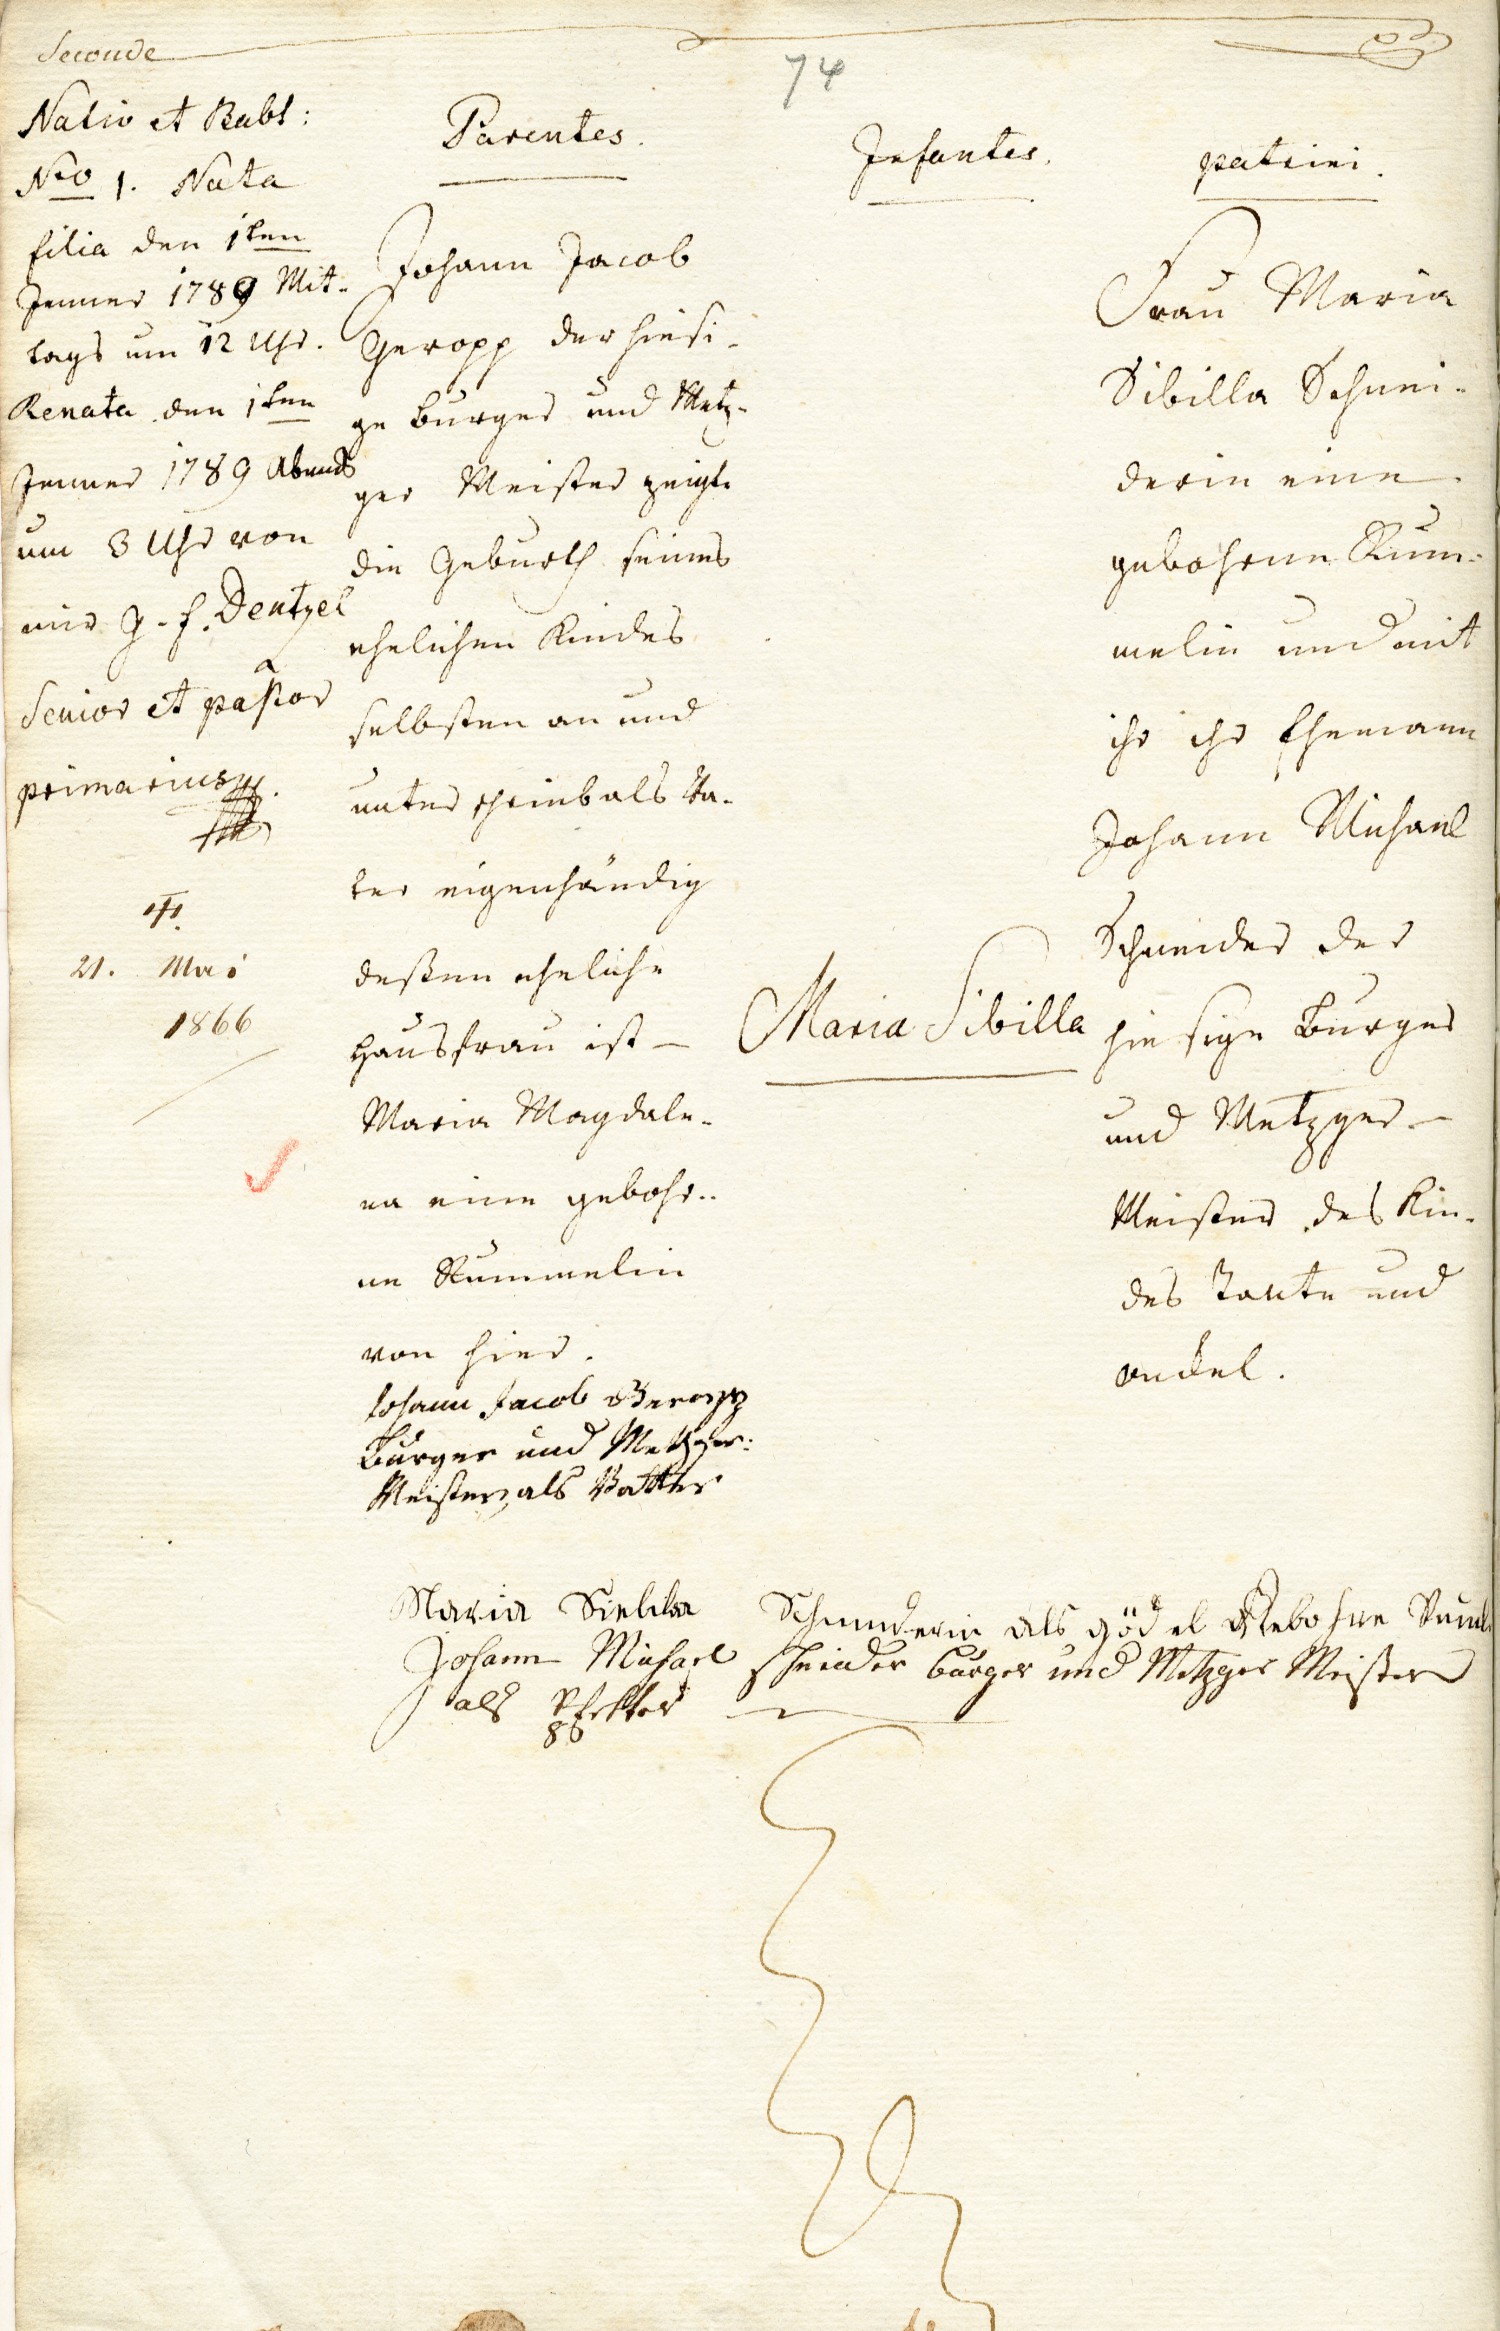 Seconde
74
Nativ et Babt:
Nro 1. Nata
filia den 1ten
Jenner 1789 Mit-
tags um 12 Uhr.
Renata den 1ten
Jenner 1789 Abends
um 3 Uhr von
mir G. F. Dentzel
Senior et pastor
primarius
21. Mai
1866
Parentes.
Johann Jacob
Geropp der hiesi-
ge burger und Metz-
ger Meister zeigte
die Geburth seines
ehelichen Kindes
selbsten an und
unterschrieb als Va-
ter eigenhändig
deßen eheliche
Hausfrau ist
Maria Magdale-
na eine gebohr-
ne Rummelin
von hier.
Johann Jacob Geropp
Burger und Metzger-
Meister, als Vatter
Infantes.
Maria Sibilla
patrini.
Frau Maria
Sibilla Schnei-
derin eine
gebohrne Rum-
melin und mit
ihr ihr Ehemann
Johann Michael
Schneider der
hiesige Burger
und Metzger
Meister des Kin-
des Tante und
onckel.
Maria Schneiderin als gödel Gebohrne
Johann Michael Schneider burger und Metzger Meister
als Pfetter